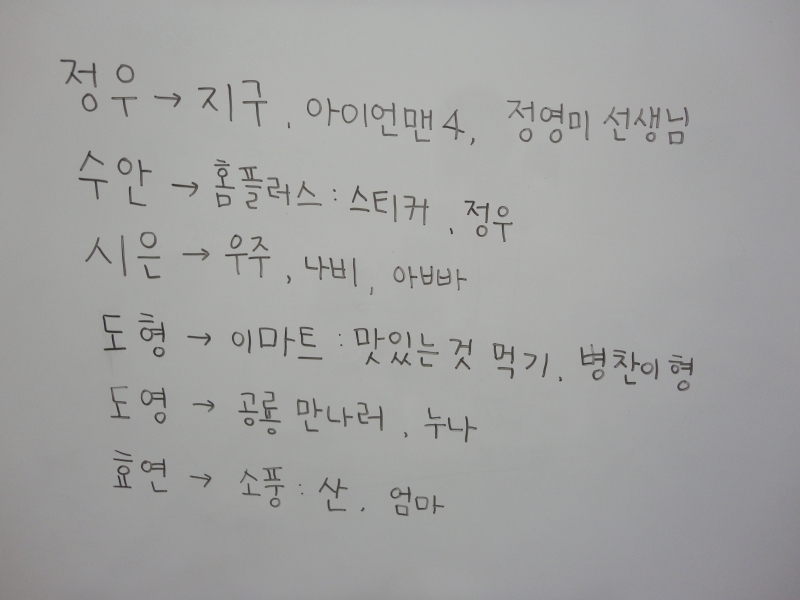 정우 → 지구, 아이언맨4, 정영미 선생님
수안 → 홈플러스 : 스티커, 정우
시은 → 우주, 나비, 아빠빠
도형 → 이마트 : 맛있는것 먹기, 병찬이형
도영 → 공룡 만나러, 누나
효연 → 소풍 : 산, 엄마